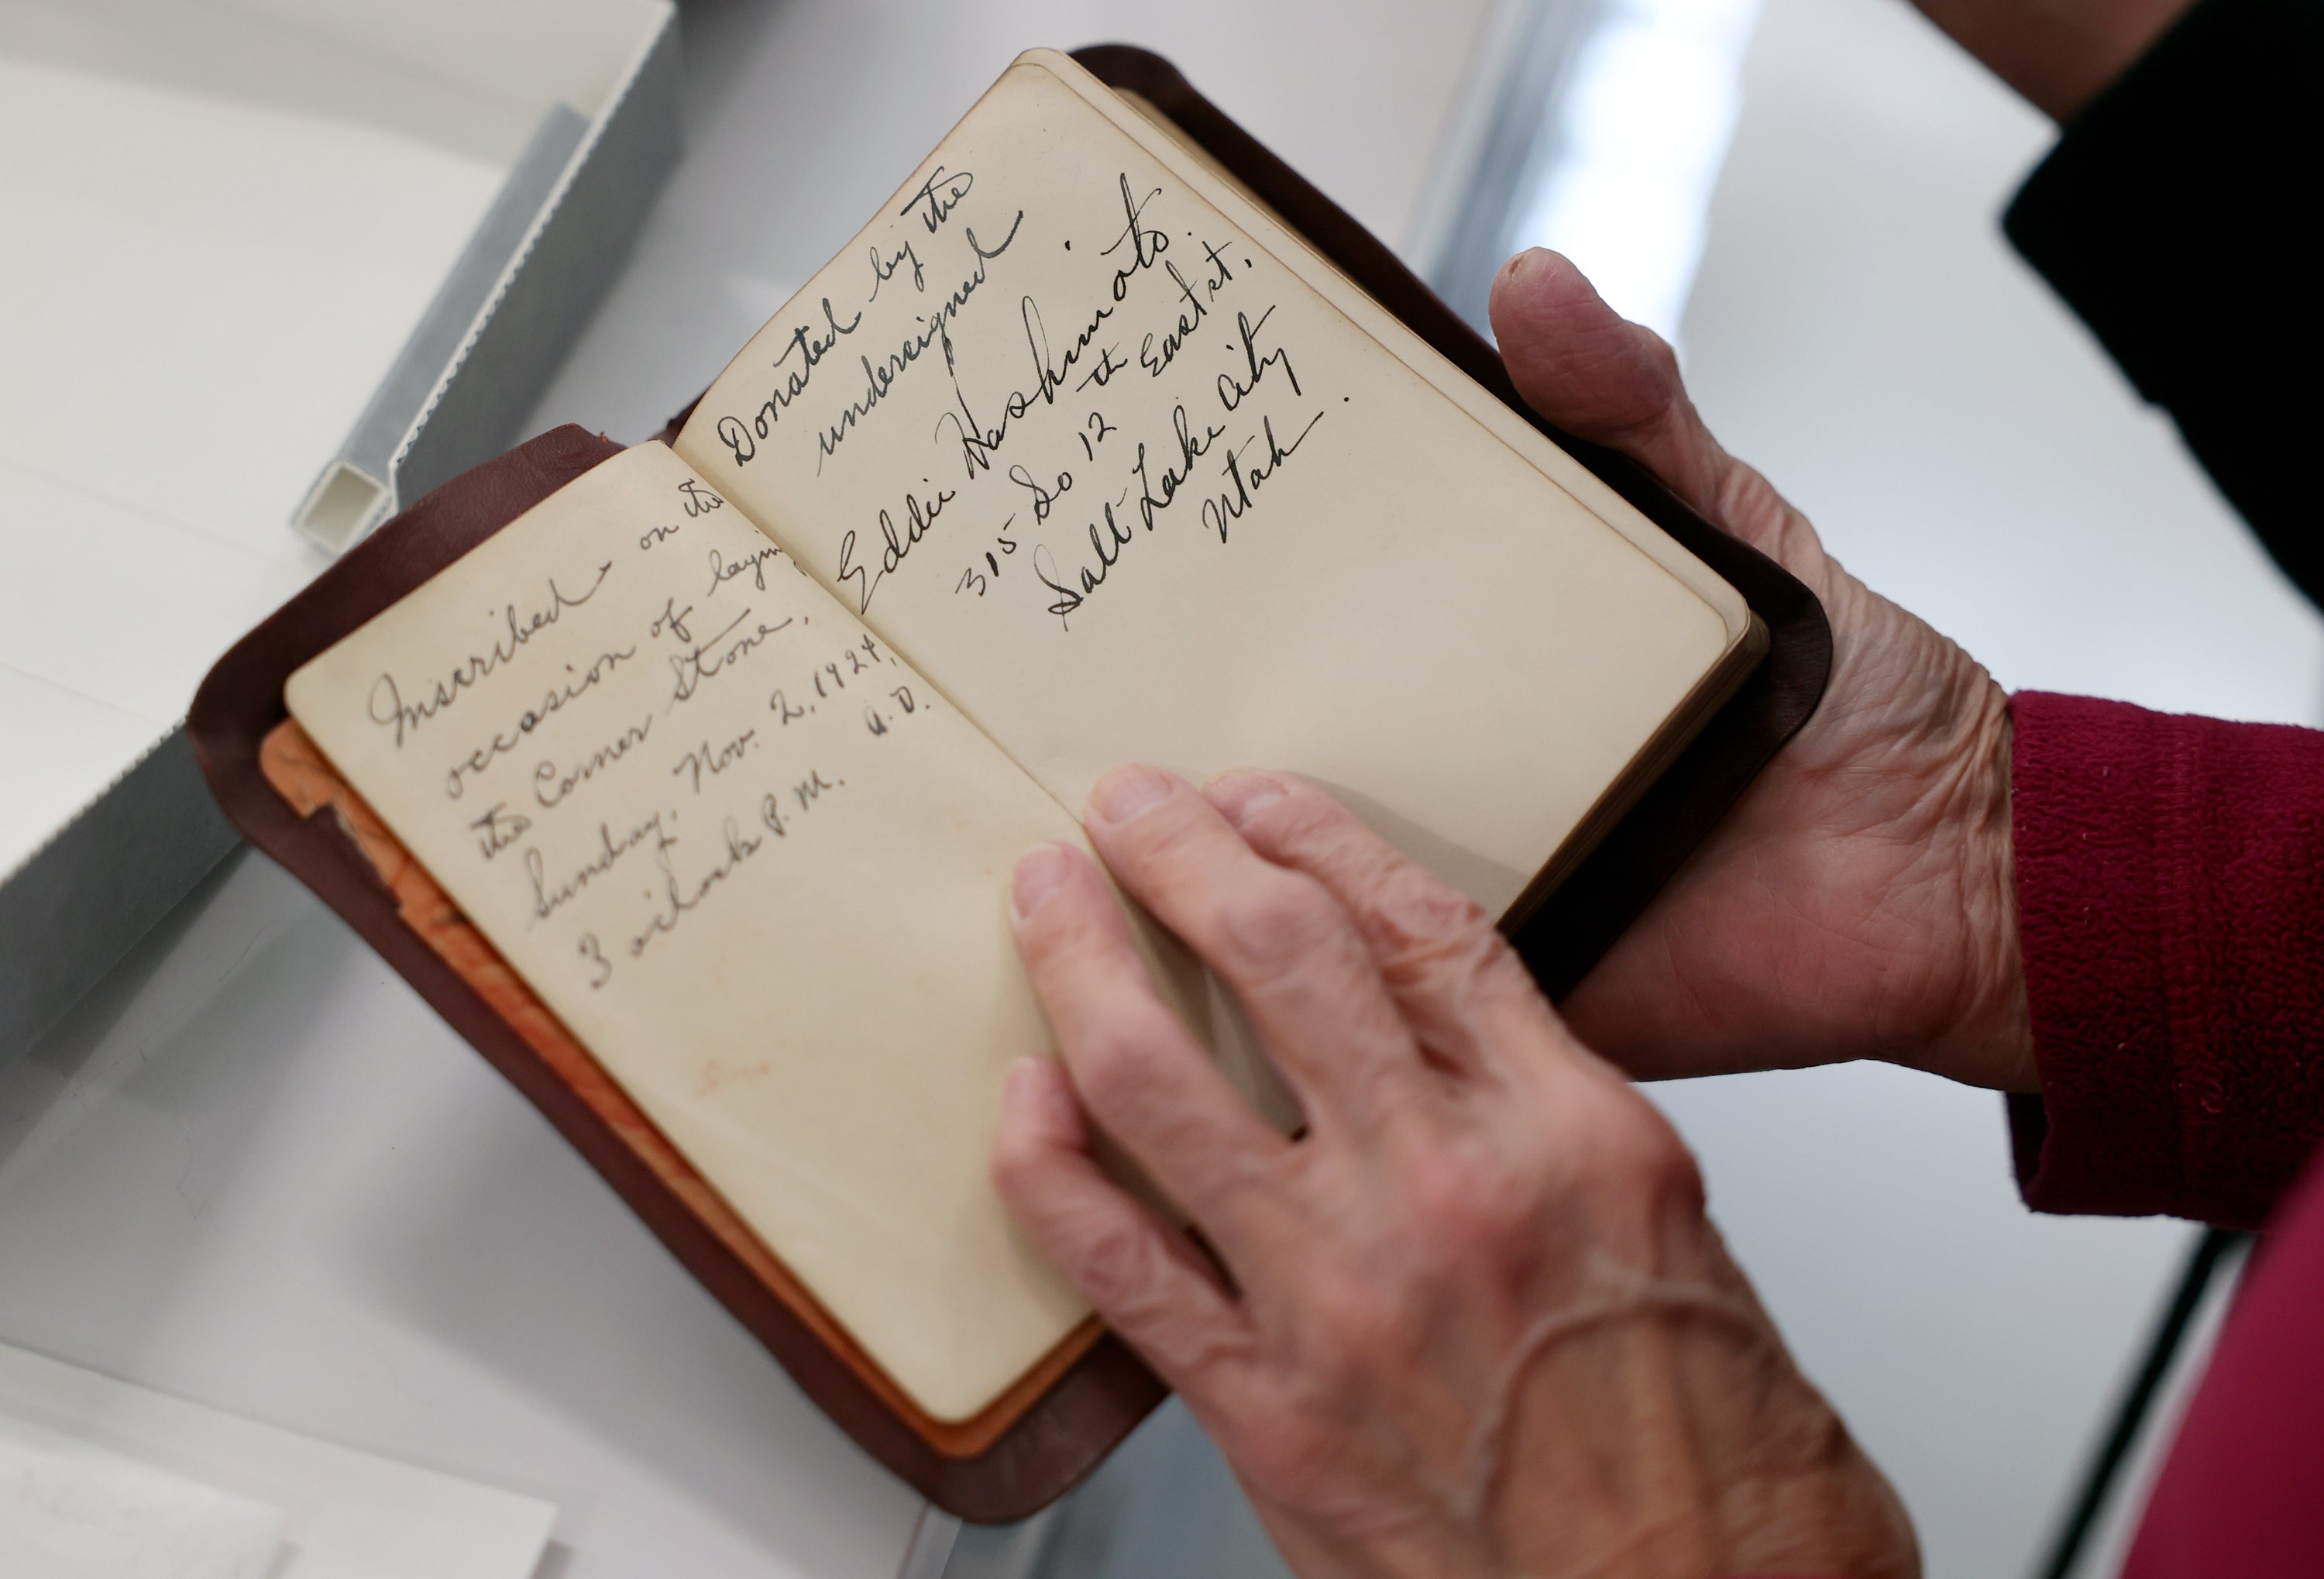 Inscribed on the
occasion of laying
the Corner Stone,
Sunday, Nov. 2, 1924,
A.D.
3 o'clock P.M.
Donated by the
undersigned
Eddie Hashimoto.
315 So 12th East st.
Salt Lake City
Utah.